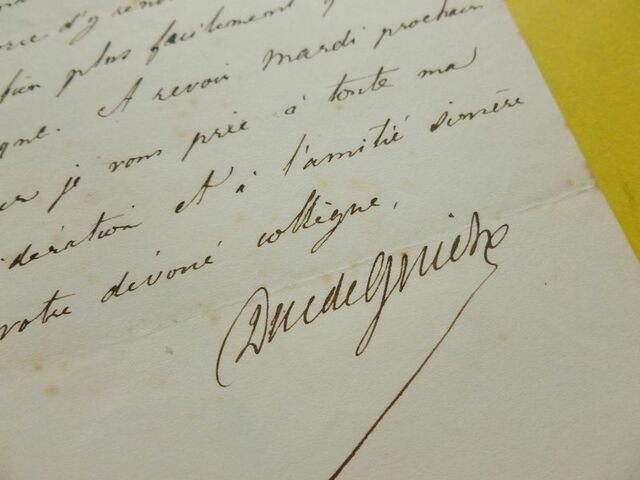 d'y
bien plus facilement
. A revoir mardi prochain
je vous prie à toute ma
dération et à l'amitié sincère
votre dévoué collègue,
Duc de Guiche